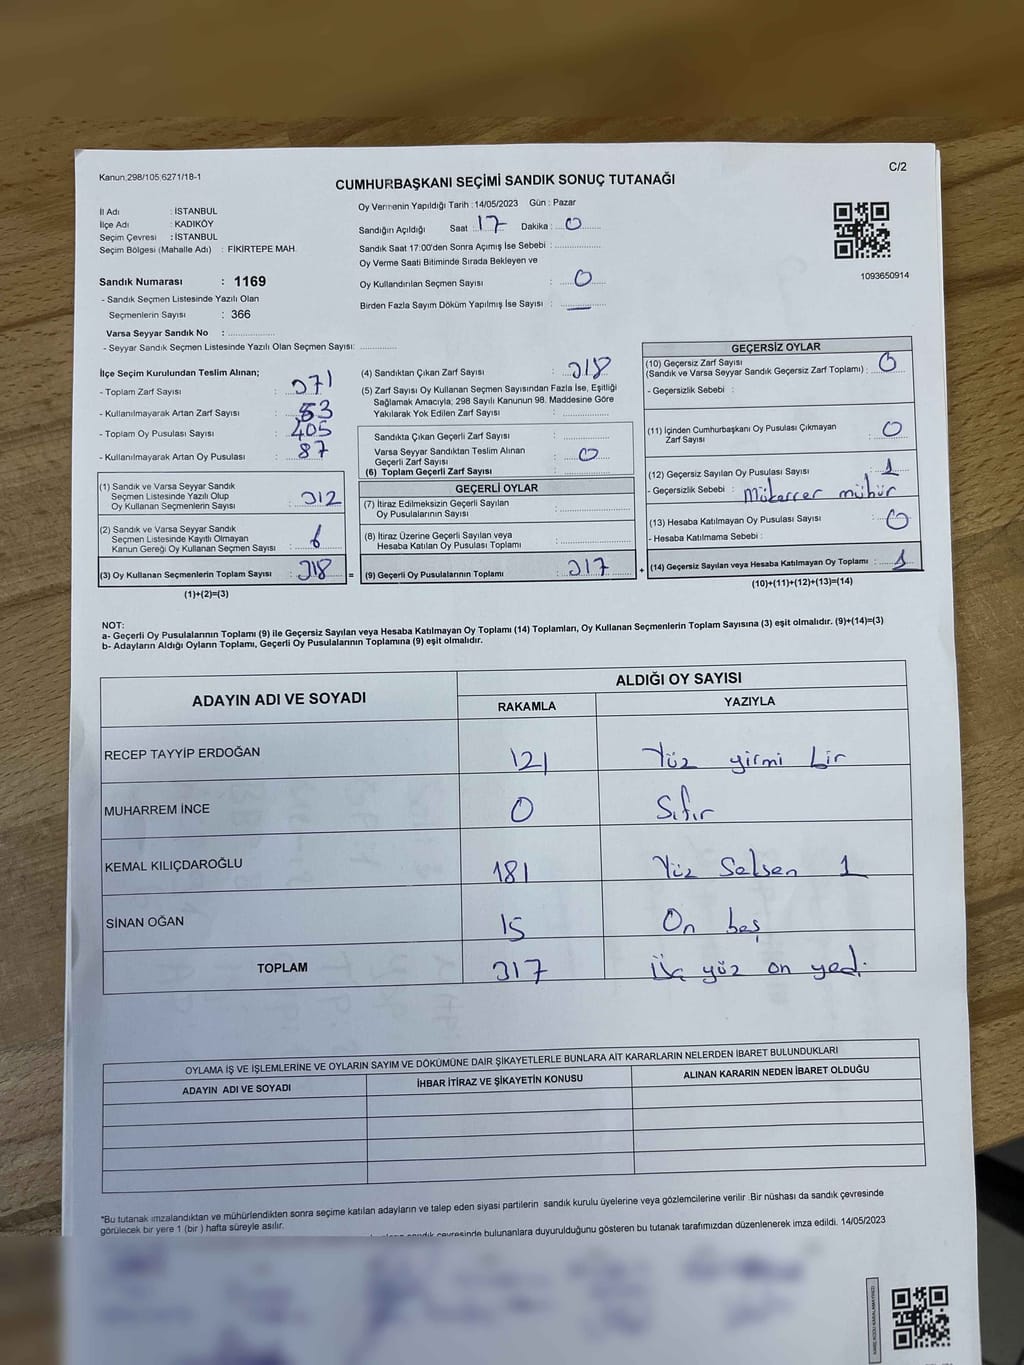 Kanun 298/105,6271/18-1
C/2
CUMHURBAŞKANI SEÇİMİ SANDIK SONUÇ TUTANAĞI
İl Adı : İSTANBUL
İlçe Adı : KADIKÖY
Seçim Çevresi : İSTANBUL
Seçim Bölgesi (Mahalle Adı) : FİKİRTEPE MAH.
Sandık Numarası : 1169
- Sandık Seçmen Listesinde Yazılı Olan
Seçmenlerin Sayısı : 366
Varsa Seyyar Sandık No :
- Seyyar Sandık Seçmen Listesinde Yazılı Olan Seçmen Sayısı:
Oy Vermenin Yapıldığı Tarih : 14/05/2023 Gün : Pazar
Sandığın Açıldığı Saat : 17 Dakika : 0
Sandık Saat 17:00'den Sonra Açımış İse Sebebi :
Oy Verme Saati Bitiminde Sırada Bekleyen ve
Oy Kullandırılan Seçmen Sayısı : 0
Birden Fazla Sayım Döküm Yapılmış İse Sayısı : —
1093650914
İlçe Seçim Kurulundan Teslim Alınan;
- Toplam Zarf Sayısı : 371
- Kullanılmayarak Artan Zarf Sayısı : 53
- Toplam Oy Pusulası Sayısı : 405
- Kullanılmayarak Artan Oy Pusulası : 87
(1) Sandık ve Varsa Seyyar Sandık
Seçmen Listesinde Yazılı Olup
Oy Kullanan Seçmenlerin Sayısı : 312
(2) Sandık ve Varsa Seyyar Sandık
Seçmen Listesinde Kayıtlı Olmayan
Kanun Gereği Oy Kullanan Seçmen Sayısı : 6
(3) Oy Kullanan Seçmenlerin Toplam Sayısı : 318 =
(1)+(2)=(3)
(4) Sandıktan Çıkan Zarf Sayısı : 318
(5) Zarf Sayısı Oy Kullanan Seçmen Sayısından Fazla İse, Eşitliği
Sağlamak Amacıyla; 298 Sayılı Kanunun 98. Maddesine Göre
Yakılarak Yok Edilen Zarf Sayısı :
Sandıkta Çıkan Geçerli Zarf Sayısı :
Varsa Seyyar Sandıktan Teslim Alınan
Geçerli Zarf Sayısı : 0
(6) Toplam Geçerli Zarf Sayısı :
GEÇERLİ OYLAR
(7) İtiraz Edilmeksizin Geçerli Sayılan
Oy Pusulalarının Sayısı :
(8) İtiraz Üzerine Geçerli Sayılan veya
Hesaba Katılan Oy Pusulası Toplamı :
(9) Geçerli Oy Pusulalarının Toplamı : 317 +
GEÇERSİZ OYLAR
(10) Geçersiz Zarf Sayısı
(Sandık ve Varsa Seyyar Sandık Geçersiz Zarf Toplamı) : 0
- Geçersizlik Sebebi :
(11) İçinden Cumhurbaşkanı Oy Pusulası Çıkmayan
Zarf Sayısı : 0
(12) Geçersiz Sayılan Oy Pusulası Sayısı : 1
- Geçersizlik Sebebi : Mükerrer mühür
(13) Hesaba Katılmayan Oy Pusulası Sayısı : 0
- Hesaba Katılmama Sebebi :
(14) Geçersiz Sayılan veya Hesaba Katılmayan Oy Toplamı : 1
(10)+(11)+(12)+(13)=(14)
NOT:
a- Geçerli Oy Pusulalarının Toplamı (9) ile Geçersiz Sayılan veya Hesaba Katılmayan Oy Toplamı (14) Toplamları, Oy Kullanan Seçmenlerin Toplam Sayısına (3) eşit olmalıdır. (9)+(14)=(3)
b- Adayların Aldığı Oyların Toplamı, Geçerli Oy Pusulalarının Toplamına (9) eşit olmalıdır.
ADAYIN ADI VE SOYADI
ALDIĞI OY SAYISI
RAKAMLA YAZIYLA
RECEP TAYYİP ERDOĞAN 121 Yüz yirmi bir
MUHARREM İNCE 0 Sıfır
KEMAL KILIÇDAROĞLU 181 Yüz Seksen 1
SİNAN OĞAN 15 On beş
TOPLAM 317 üç yüz on yedi
OYLAMA İŞ VE İŞLEMLERİNE VE OYLARIN SAYIM VE DÖKÜMÜNE DAİR ŞİKAYETLERLE BUNLARA AİT KARARLARIN NELERDEN İBARET BULUNDUKLARI
ADAYIN ADI VE SOYADI İHBAR İTİRAZ VE ŞİKAYETİN KONUSU ALINAN KARARIN NEDEN İBARET OLDUĞU
*Bu tutanak imzalandıktan ve mühürlendikten sonra seçime katılan adayların ve talep eden siyasi partilerin sandık kurulu üyelerine veya gözlemcilerine verilir .Bir nüshası da sandık çevresinde
görülecek bir yere 1 (bir ) hafta süreyle asılır.
sandık çevresinde bulunanlara duyurulduğunu gösteren bu tutanak tarafımızdan düzenlenerek imza edildi. 14/05/2023